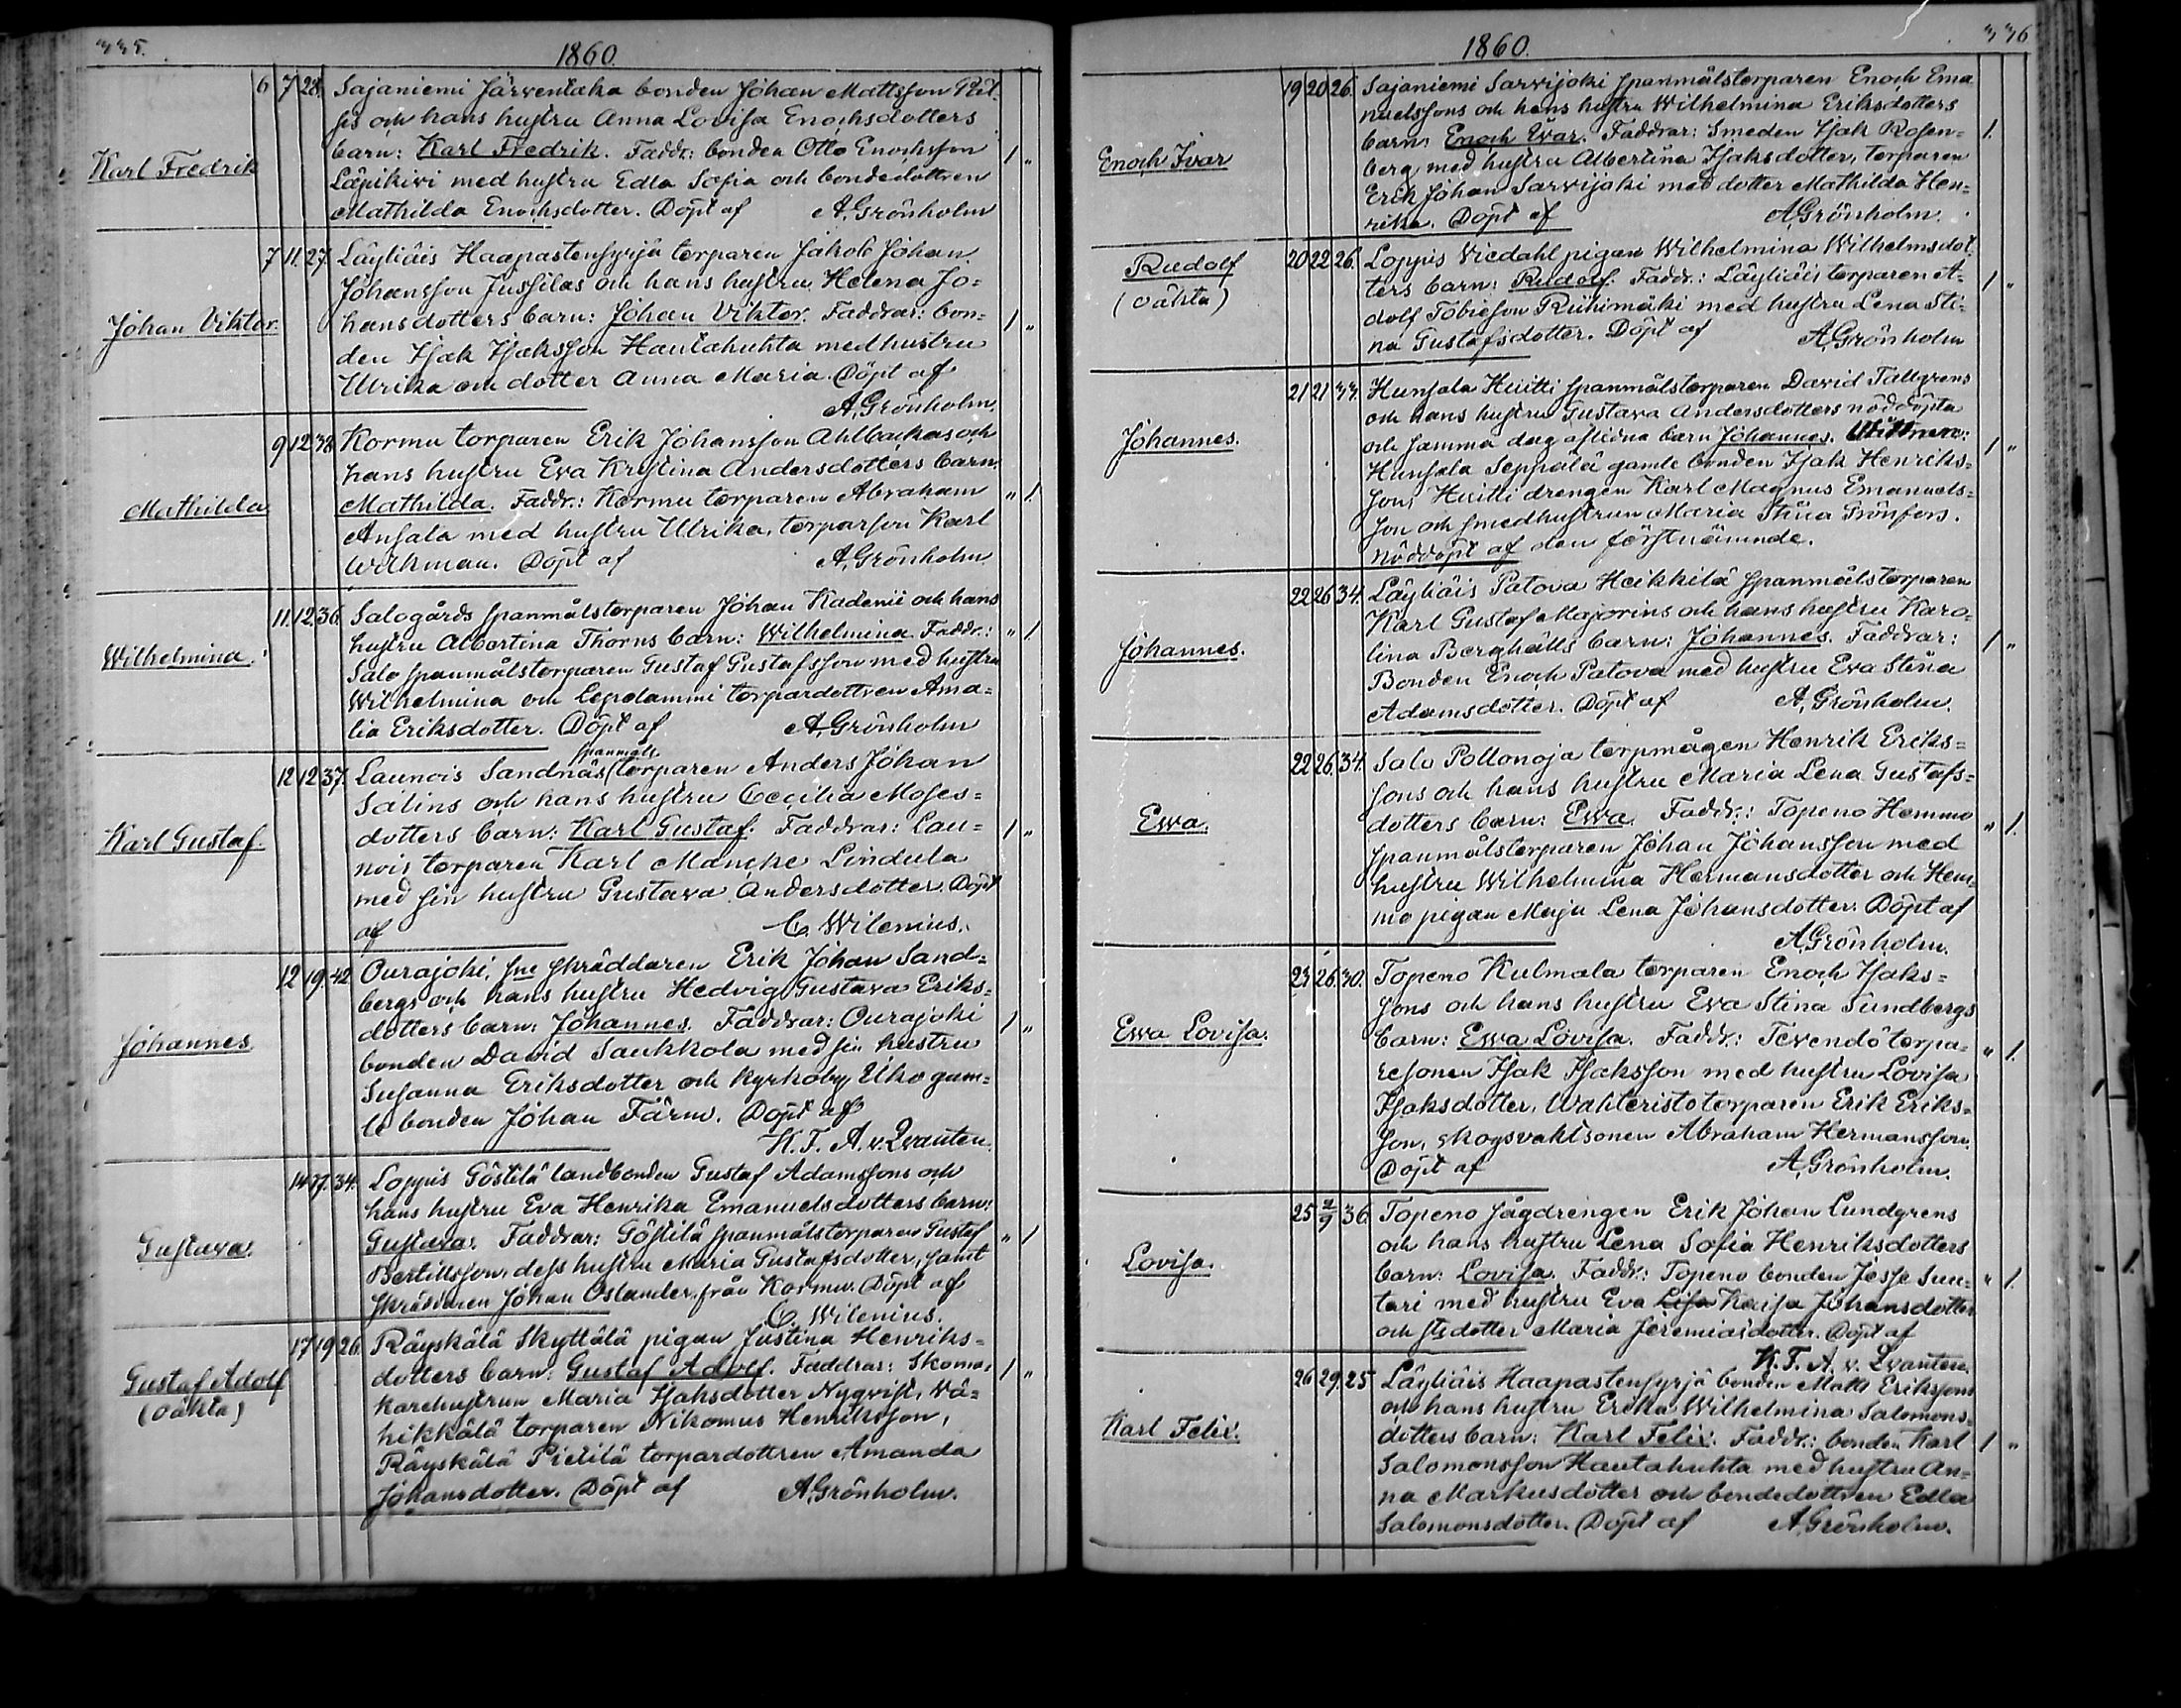 335.
1860.
Karl Fredrik
6 7 28. Sajaniemi Järventaka bonden Johan Mattsson
sis och hans hustru Anna Lovisa Enochsdotters
barn: Karl Fredrik. Faddr: bonden Otto Enochsson 1 "
Läpikivi med hustru Edla Sofia och bondedottren
Mathilda Enochsdotter. Döpt af A. Grönholm
Johan Viktor.
7 11. 27. Läyliäis Haapastensyrjä torparen Jakob Johan
Johansson Jussilas och hans hustru Helena Jo=
hansdotters barn: Johan Viktor. Faddrar: bon= 1 "
den Isak Isaksson Hautakuhta med hustru
Ulrika och dotter Anna Maria. Döpt af
A. Grönholm.
Mathilda
9 12 38 Kormu torparen Erik Johansson Ahlbackas och
hans hustru Eva Kristina Andersdotters barn:
Mathilda. Faddr.: Kormu torparen Abraham " 1.
Ansala med hustru Ulrika, torparson Karl
Wilkman. Döpt af A. Grönholm
Wilhelmina.
11. 12. 36. Salogårds spanmålstorparen Johan Kadenii och hans
hustru Albertina Thorns barn: Wilhelmina. Faddr.: " 1
Salo spanmålstorparen Gustaf Gustafsson med hustru
Wilhelmina och Lepolammi torpardottren Ama=
lia Eriksdotter. Döpt af A. Grönholm
Karl Gustaf.
spanmåls
12 12 37. Launois Sandnäs torparen Anders Johan
Salins och hans hustru Cecilia Moses=
dotters barn: Karl Gustaf. Faddrar: Lau= 1 "
nois torparen Karl Lindula
med sin hustru Gustava Andersdotter. Döpt
af C. Wilenius.
Johannes
12 19. 42 Ourajoki, skräddaren Erik Johan Sand=
bergs och hans hustru Hedvig Gustava Eriks=
dotters barn: Johannes. Faddrar: Ourajoki 1 "
bonden David Saukkola med sin hustru
Susanna Eriksdotter och Kyrkoby Uko gam=
le bonden Johan Färm. Döpt af
K. T. A. v. Qvanten.
Gustava.
14 17. 34. Loppis Göstilä landbonden Gustaf Adamssons och
hans hustru Eva Henrika Emanuelsdotters barn:
Gustava. Faddrar: Göstilä spanmålstorparen Gustaf " 1
Bertillsson, dess hustru Maria Gustafsdotter, samt
skräddaren Johan Oslander från Kormu. Döpt af
C. Wilenius.
Gustaf Adolf
(oäkta)
17 19 26. Räyskälä Skyttälä pigan Justina Henriks=
dotters barn: Gustaf Adolf. Faddrar: Skoma= 1 "
karehustrun Maria Isaksdotter Nyqvist, Wä=
hikkälä torparen Nikomus Henriksson,
Räyskälä Pietilä torpardottren Amanda
Johansdotter. Döpt af A. Grönholm.
336
1860.
Enoch Ivar
19 20 26. Sajaniemi Sarvijoki spanmålstorparen Enoch Ema
nuelssons och hans hustru Wilhelmina Eriksdotters
barn: Enoch Ivar. Faddrar: Smeden Isak Rosen= 1.
berg med hustru Albertina Isaksdotter, torparen
Erik Johan Sarvijoki med dotter Mathilda Hen=
rika. Döpt af A. Grönholm.
Rudolf
(oäkta)
20 22 26. Loppis Viedahl pigan Wilhelmina Wilhelmsdot
ters barn: Rudolf. Faddr.: Läyliäis torparen A= 1 "
dolf Tobieson Riihimäki med hustru Lena Sti=
na Gustafsdotter. Döpt af A. Grönholm
Johannes.
21 21 37. Hunsala Huitti spanmålstorparen David Tallgrens
och hans hustru Gustava Andersdotters nöddöpta
och samma dag aflidna barn Johannes. Vittnen: 1 "
Hunsala Seppälä gamle bonden Isak Henriks=
son, Huitti drengen Karl Magnus Emanuels=
son och smedhustrun Maria Stina Grönfors.
Nöddöpt af den förstnämnde.
Johannes.
22 26 34. Läyliäis Patova Heikkilä spanmålstorparen
Karl Gustaf Majorins och hans hustru Karo=
lina Berghälls barn: Johannes. Faddrar: 1 "
Bonden Enoch Patova med hustru Eva Stina
Adamsdotter. Döpt af A. Grönholm.
Ewa.
22 26. 34. Salo Pollonoja torpmågen Henrik Eriks=
sons och hans hustru Maria Lena Gustafs=
dotters barn: Ewa. Faddr.: Topeno Hemmo " 1.
spanmålstorparen Johan Johansson med
hustru Wilhelmina Hermansdotter och Hem=
mo pigan Maja Lena Johansdotter. Döpt af
A. Grönholm.
Ewa Lovisa.
23 26. 30. Topeno Kulmala torparen Enoch Isaks=
sons och hans hustru Eva Stina Sundbergs
barn: Ewa Lovisa. Faddr.: Tevendö torpa= " 1.
resonen Isak Isaksson med hustru Lovisa
Isaksdotter, Wahteristo torparen Erik Eriks=
son, skogsvaktsonen Abraham Hermansson.
Döpt af A. Grönholm.
Lovisa.
25 2/9 36. Topeno sågdrengen Erik Johan Lundgrens
och hans hustru Lena Sofia Henriksdotters
barn: Lovisa. Faddr.: Topeno bonden Josse Sun= " 1.
tari med hustru Eva Lisa Kaisa Johansdotter
och dotter Maria Jeremiasdotter. Döpt af
K. T. A. v. Qvanten.
Karl Felix.
26 29. 25 Läyliäis Haapastensyrjä bonden Matts Erikssons
och hans hustru Erika Wilhelmina Salomons=
dotters barn: Karl Felix. Faddr.: bonden Karl 1 "
Salomonsson Hautakuhta med hustru An=
na Markusdotter och bondedottren Edla
Salomonsdotter. Döpt af A. Grönholm.